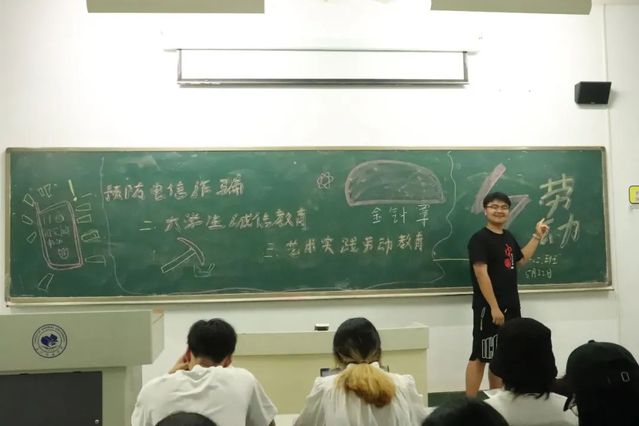 预防电信诈骗
二.大学生诚信教育
三.艺术实践劳动教育
金针菇
劳动
5月22日